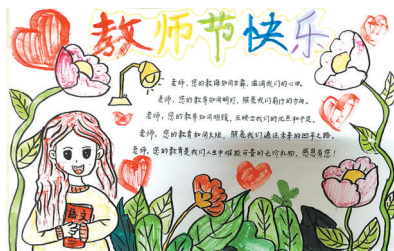 教师节快乐
老师，您的教诲如同甘露，滋润我们的心田。
老师，您的教育如同明灯，照亮我们前行的方向。
老师，您的教育如同明镜，反映出我们的优点和不足。
老师，您的教育如同太阳，照亮我们通往未来的
老师，您的教育是我们人生中难能可贵的 礼物，感恩有您！
语文